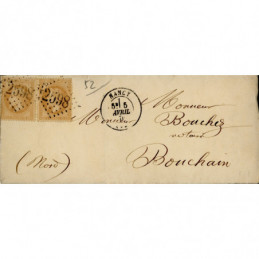 2598
2598
52
NANCY
5E 5
AVRIL
Monsieur
Monsieur Bouchez
notaire
Bouchain
(Nord)